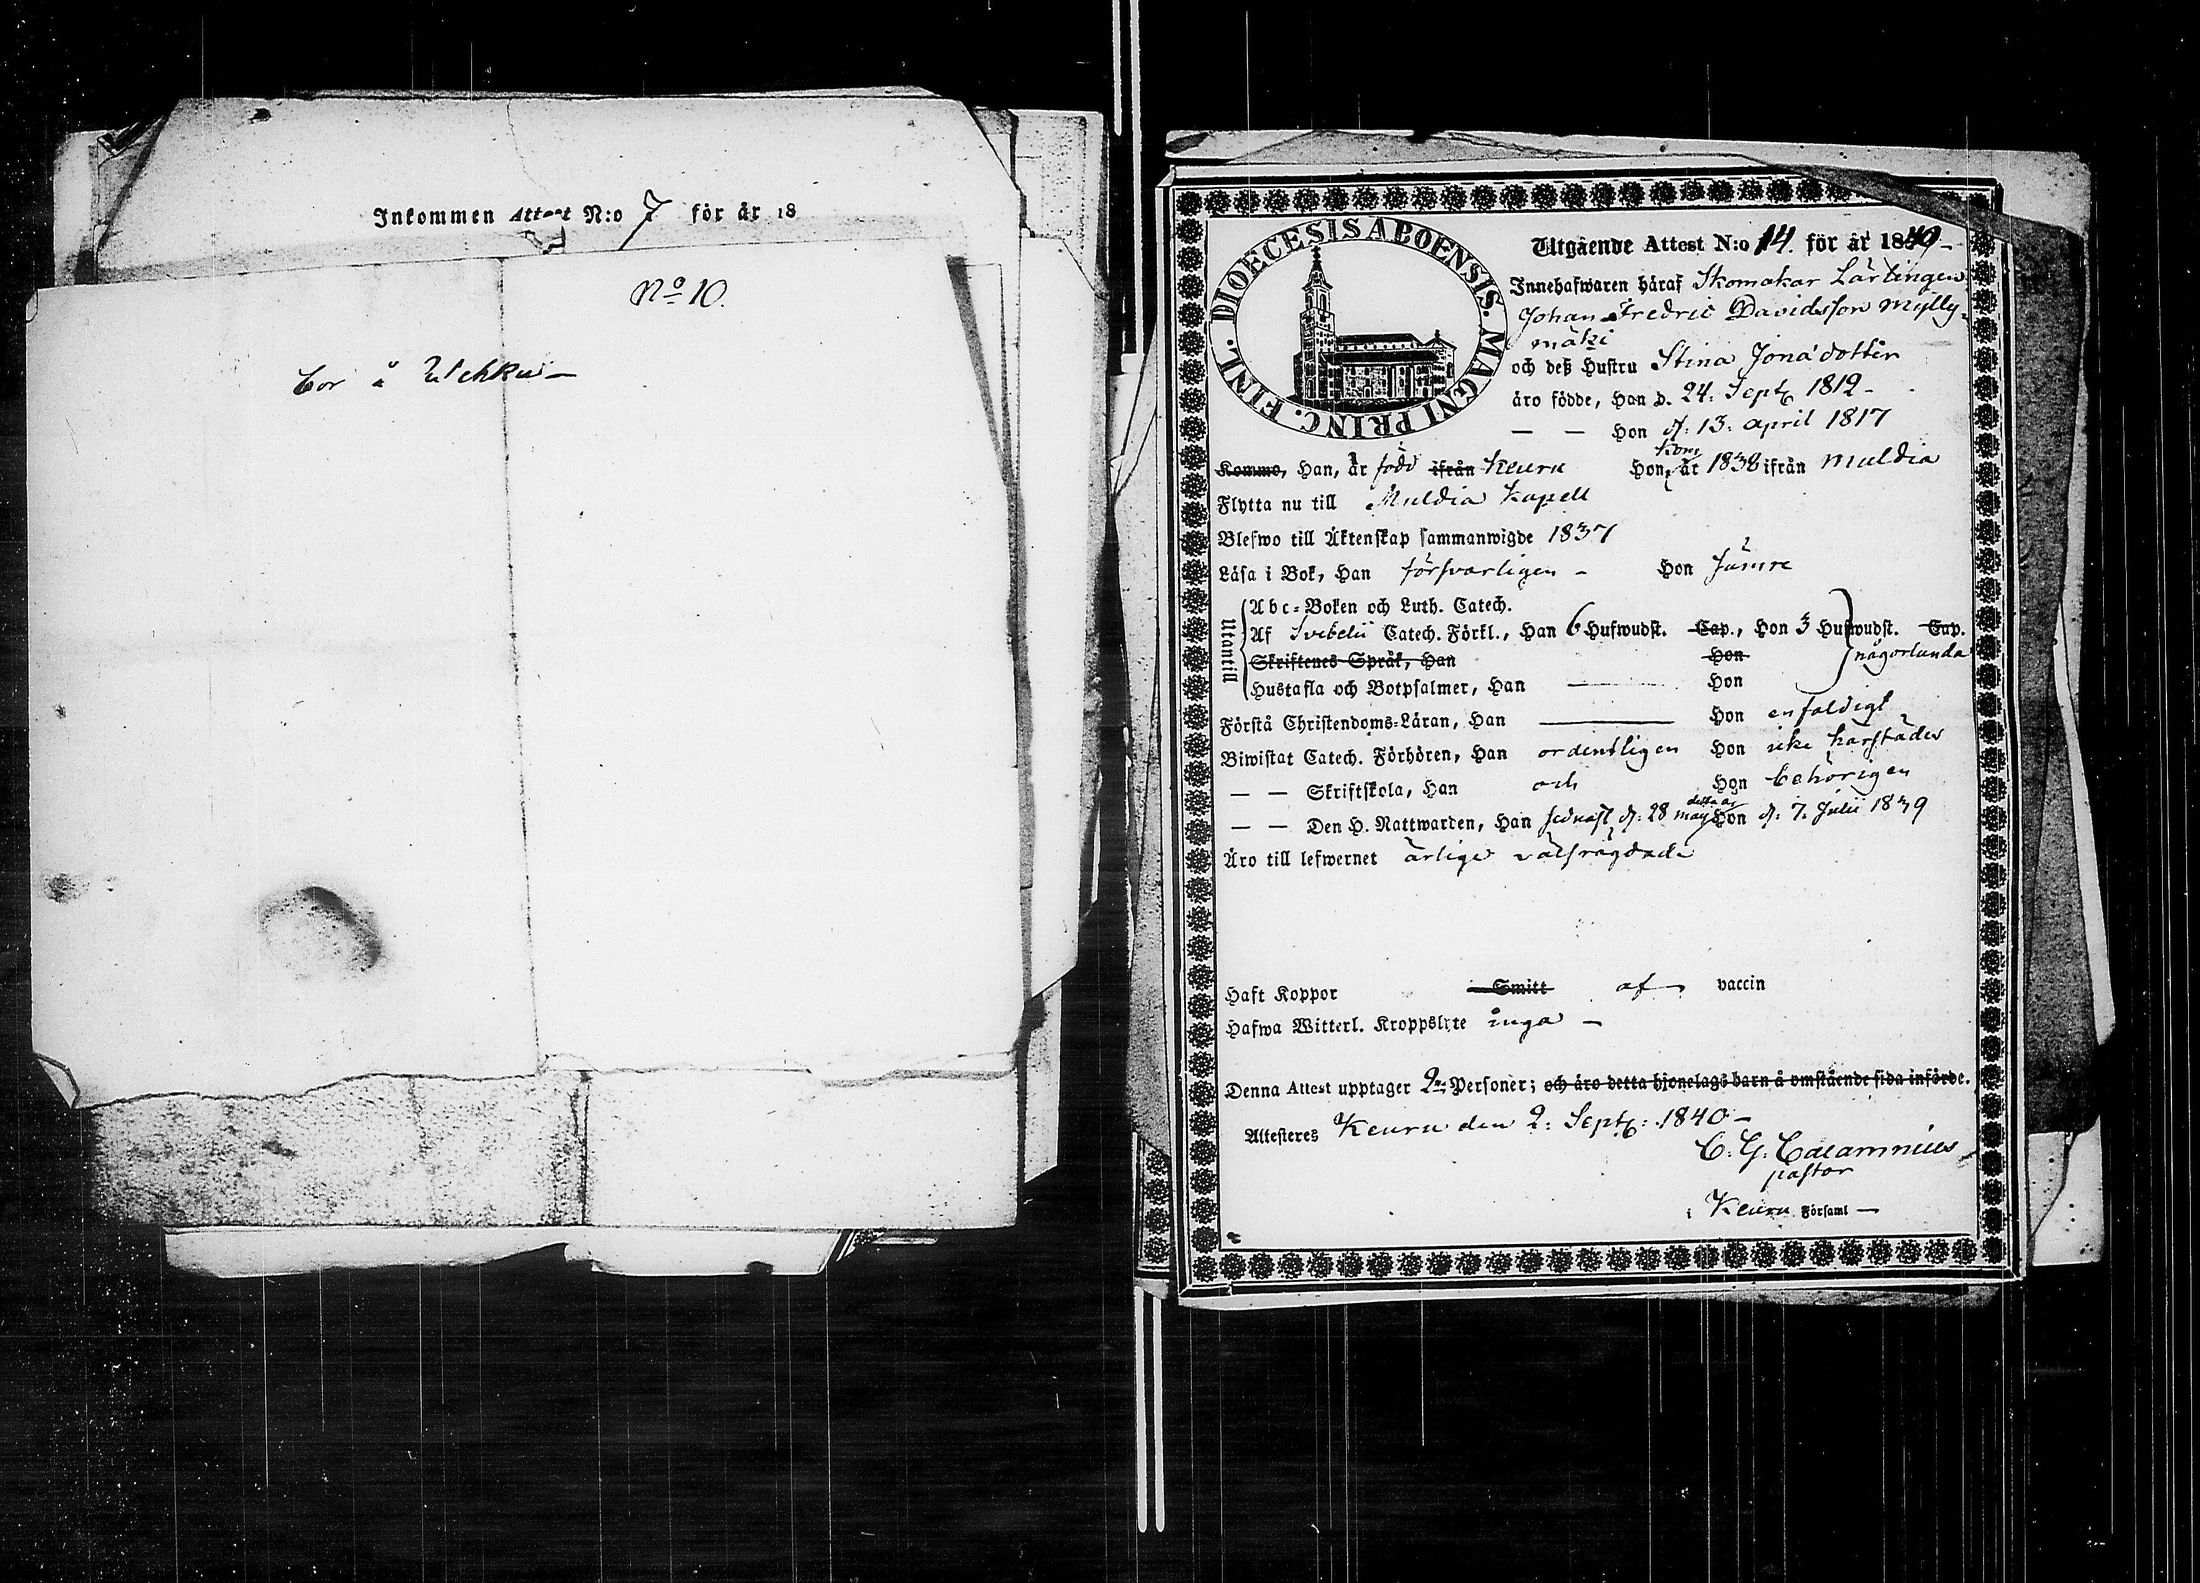 Inkommen Attest N:o 7 för år 18
No 10.
bor å Uehku —
DIOECESIS ABOENSIS. MAGNI PRINC. FINL.
Utgående Attest N:o 14. för år 1840 —
Innehafwaren häraf Skomakar Lärlingen
Johan Fredric Davidsson Mylly-
mäki
och deß Hustru Stina Jonadotter
äro födde, Han d. 24: Sept: 1812 —
— — Hon d: 13: april 1817
kom
Kommo, Han, är född ifrån Keuru Hon, år 1838 ifrån Muldia
Flytta nu till Muldia Kapell
Blefwo till Äktenskap sammanwigde 1837
Läsa i Bok, Han försvarligen — Hon Jämre
Utantill
Abc-Boken och Luth. Catech.
Af Svebelii Catech. Förkl., Han 6 Hufwudst. Cap., Hon 3 Hufwudst. Cap.
någorlunda
Skriftenes Språk, Han Hon
Hustafla och Botpsalmer, Han — Hon
Förstå Christendoms-Läran, Han — Hon enfaldigt
Biwistat Catech. Förhören, Han ordentligen Hon icke härstädes
— — Skriftskola, Han och Hon behörigen
detta år
— — Den H. Nattwarden, Han sednast d: 28 maj Hon d: 7. Julii 1839
Äro till lefwernet ärlige välfrägdade
Haft Koppor Smitt af vaccin
Hafwa Witterl. Kroppslyte inga —
Denna Attest upptager 2ne Personer; och äro detta hjonelags barn å omstående sida införde.
Attesteres Keuru den 2: Sept: 1840 —
C. G. Calamnius
pastor
i Keuru Församl —